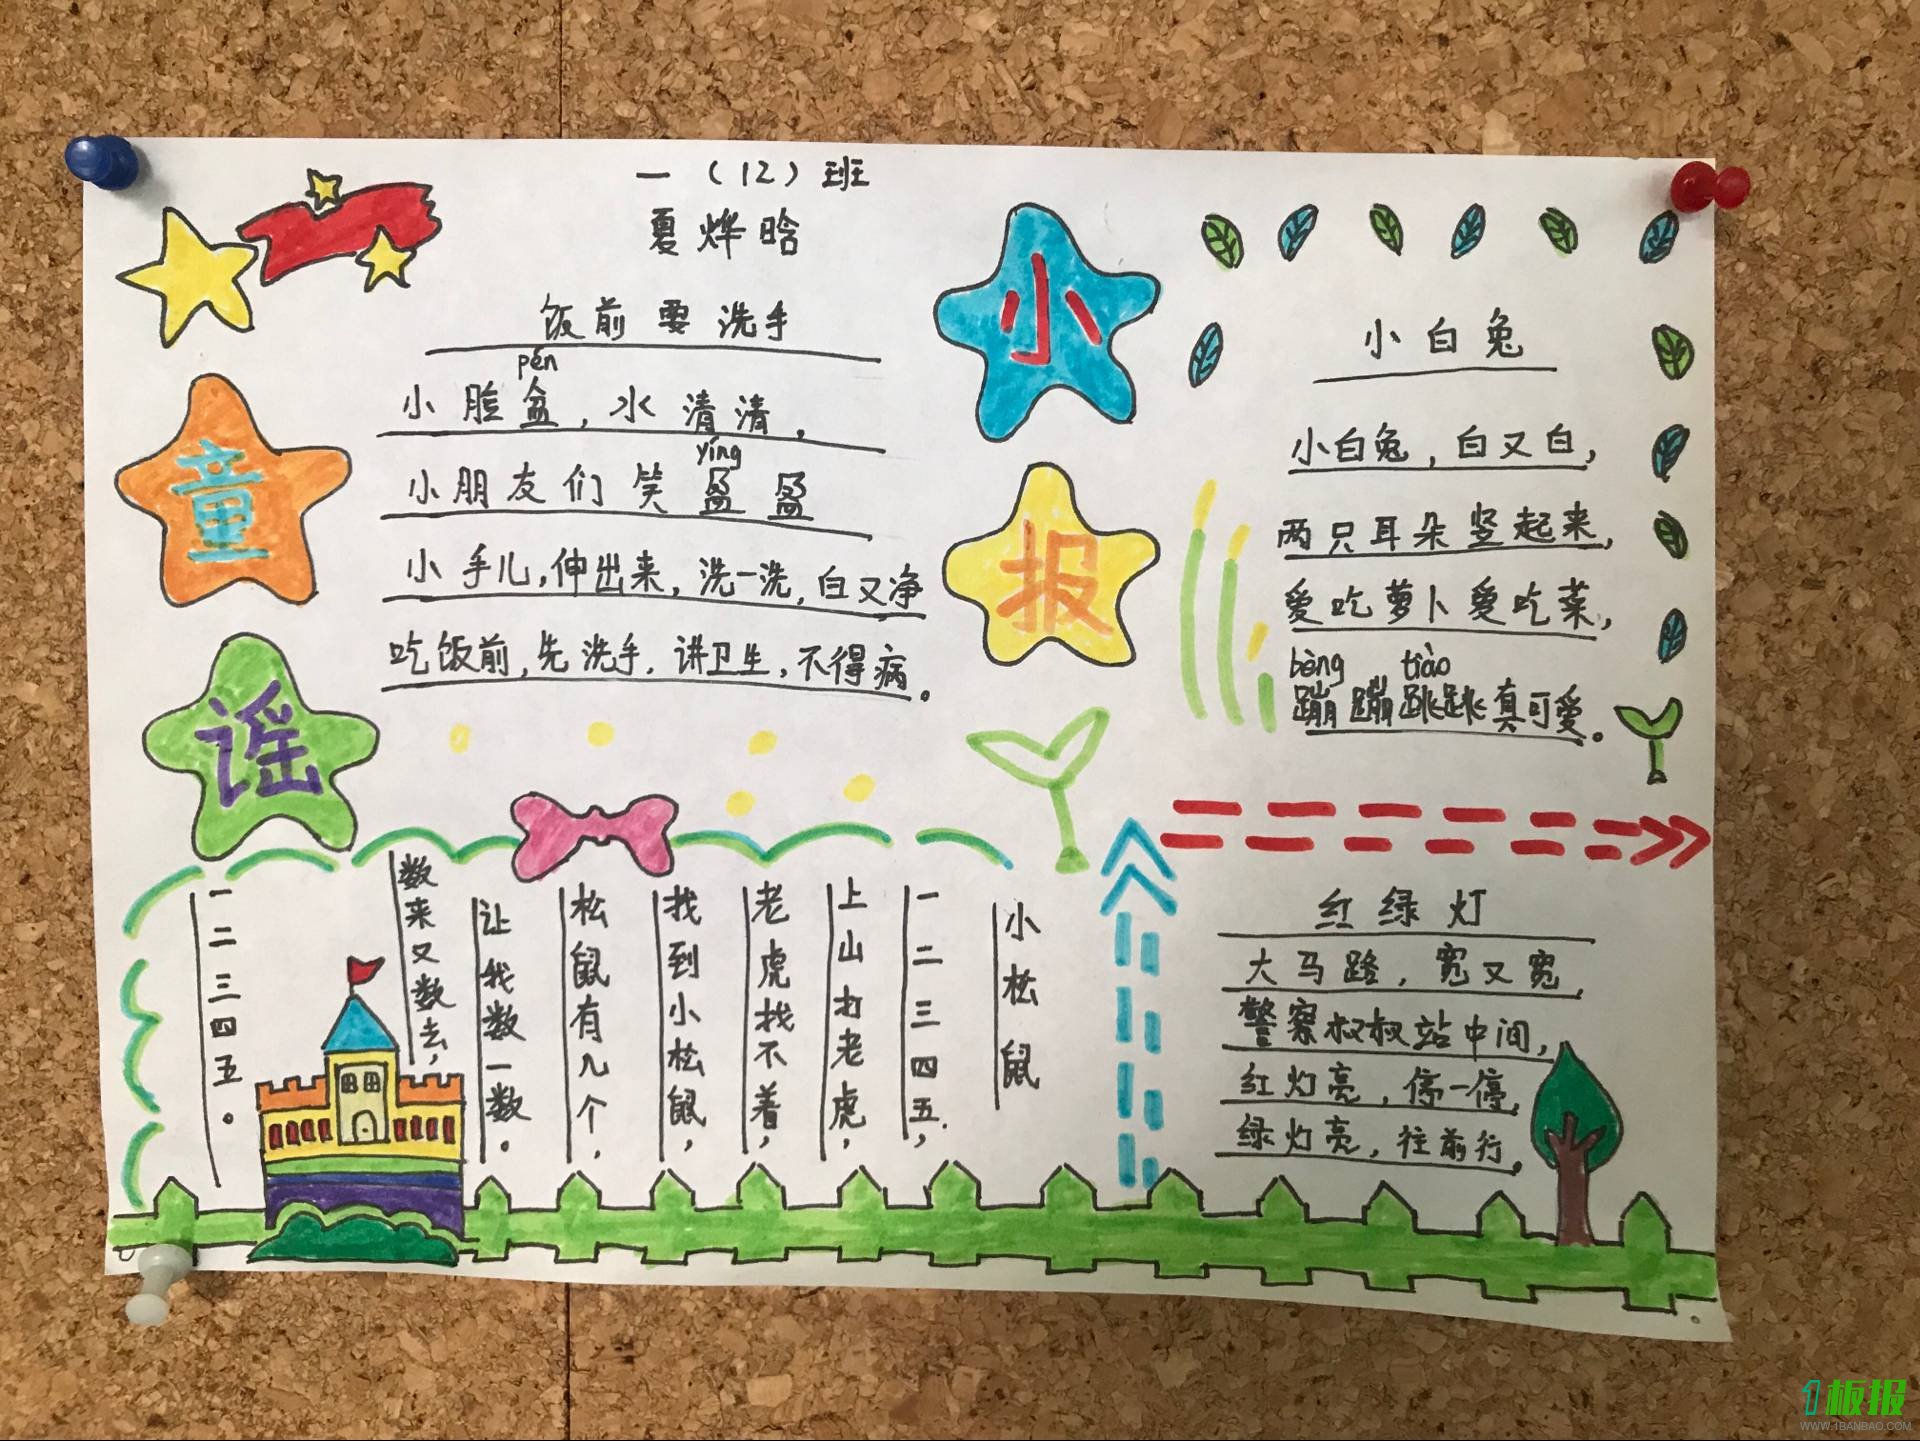 一（12）班
夏烨晗
童
谣
小
报
饭前要洗手
pén
小脸盆，水清清，
yíng
小朋友们笑盈盈
小手儿，伸出来，洗一洗，白又净
吃饭前，先洗手，讲卫生，不得病。
小白兔
小白兔，白又白，
两只耳朵竖起来，
爱吃萝卜爱吃菜，
bèng tiào
蹦蹦跳跳真可爱。
小松鼠
一二三四五，
上山打老虎，
老虎找不着，
找到小松鼠，
松鼠有几个，
让我数一数。
数来又数去，
一二三四五。
红绿灯
大马路，宽又宽，
警察叔叔站中间，
红灯亮，停一停，
绿灯亮，往前行。
1板报
WWW.1BANBAO.COM